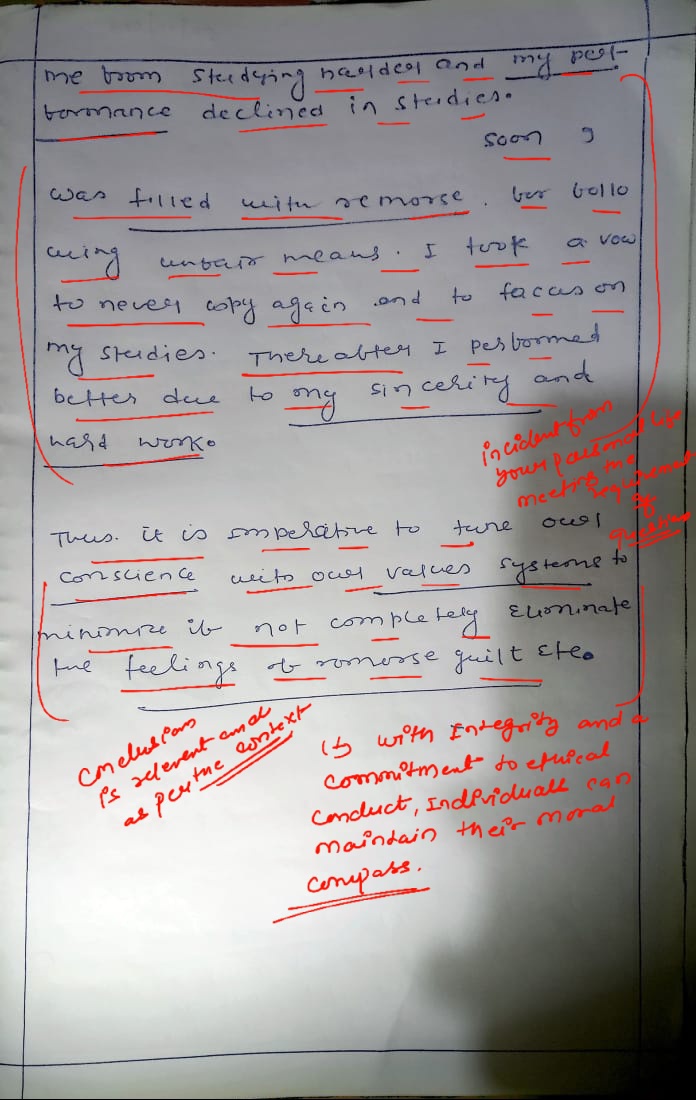 me from studying harder and my per-
formance declined in studies.
soon I
was filled with remorse. for follo
wing unfair means. I took a vow
to never copy again and to faccus on
my studies. Thereafter I performed
better due to my sincerity and
hard work.
incident from
your personal life
meeting the
requirement
of
question
Thus. it is imperative to tune our
conscience with our values systems to
minimize if not completely eliminate
the feelings of remorse guilt etc.
conclusion
is relevent and
as per the context
↳ with Integrity and a
commitment to ethical
conduct, Individuals can
maintain their moral
compass.